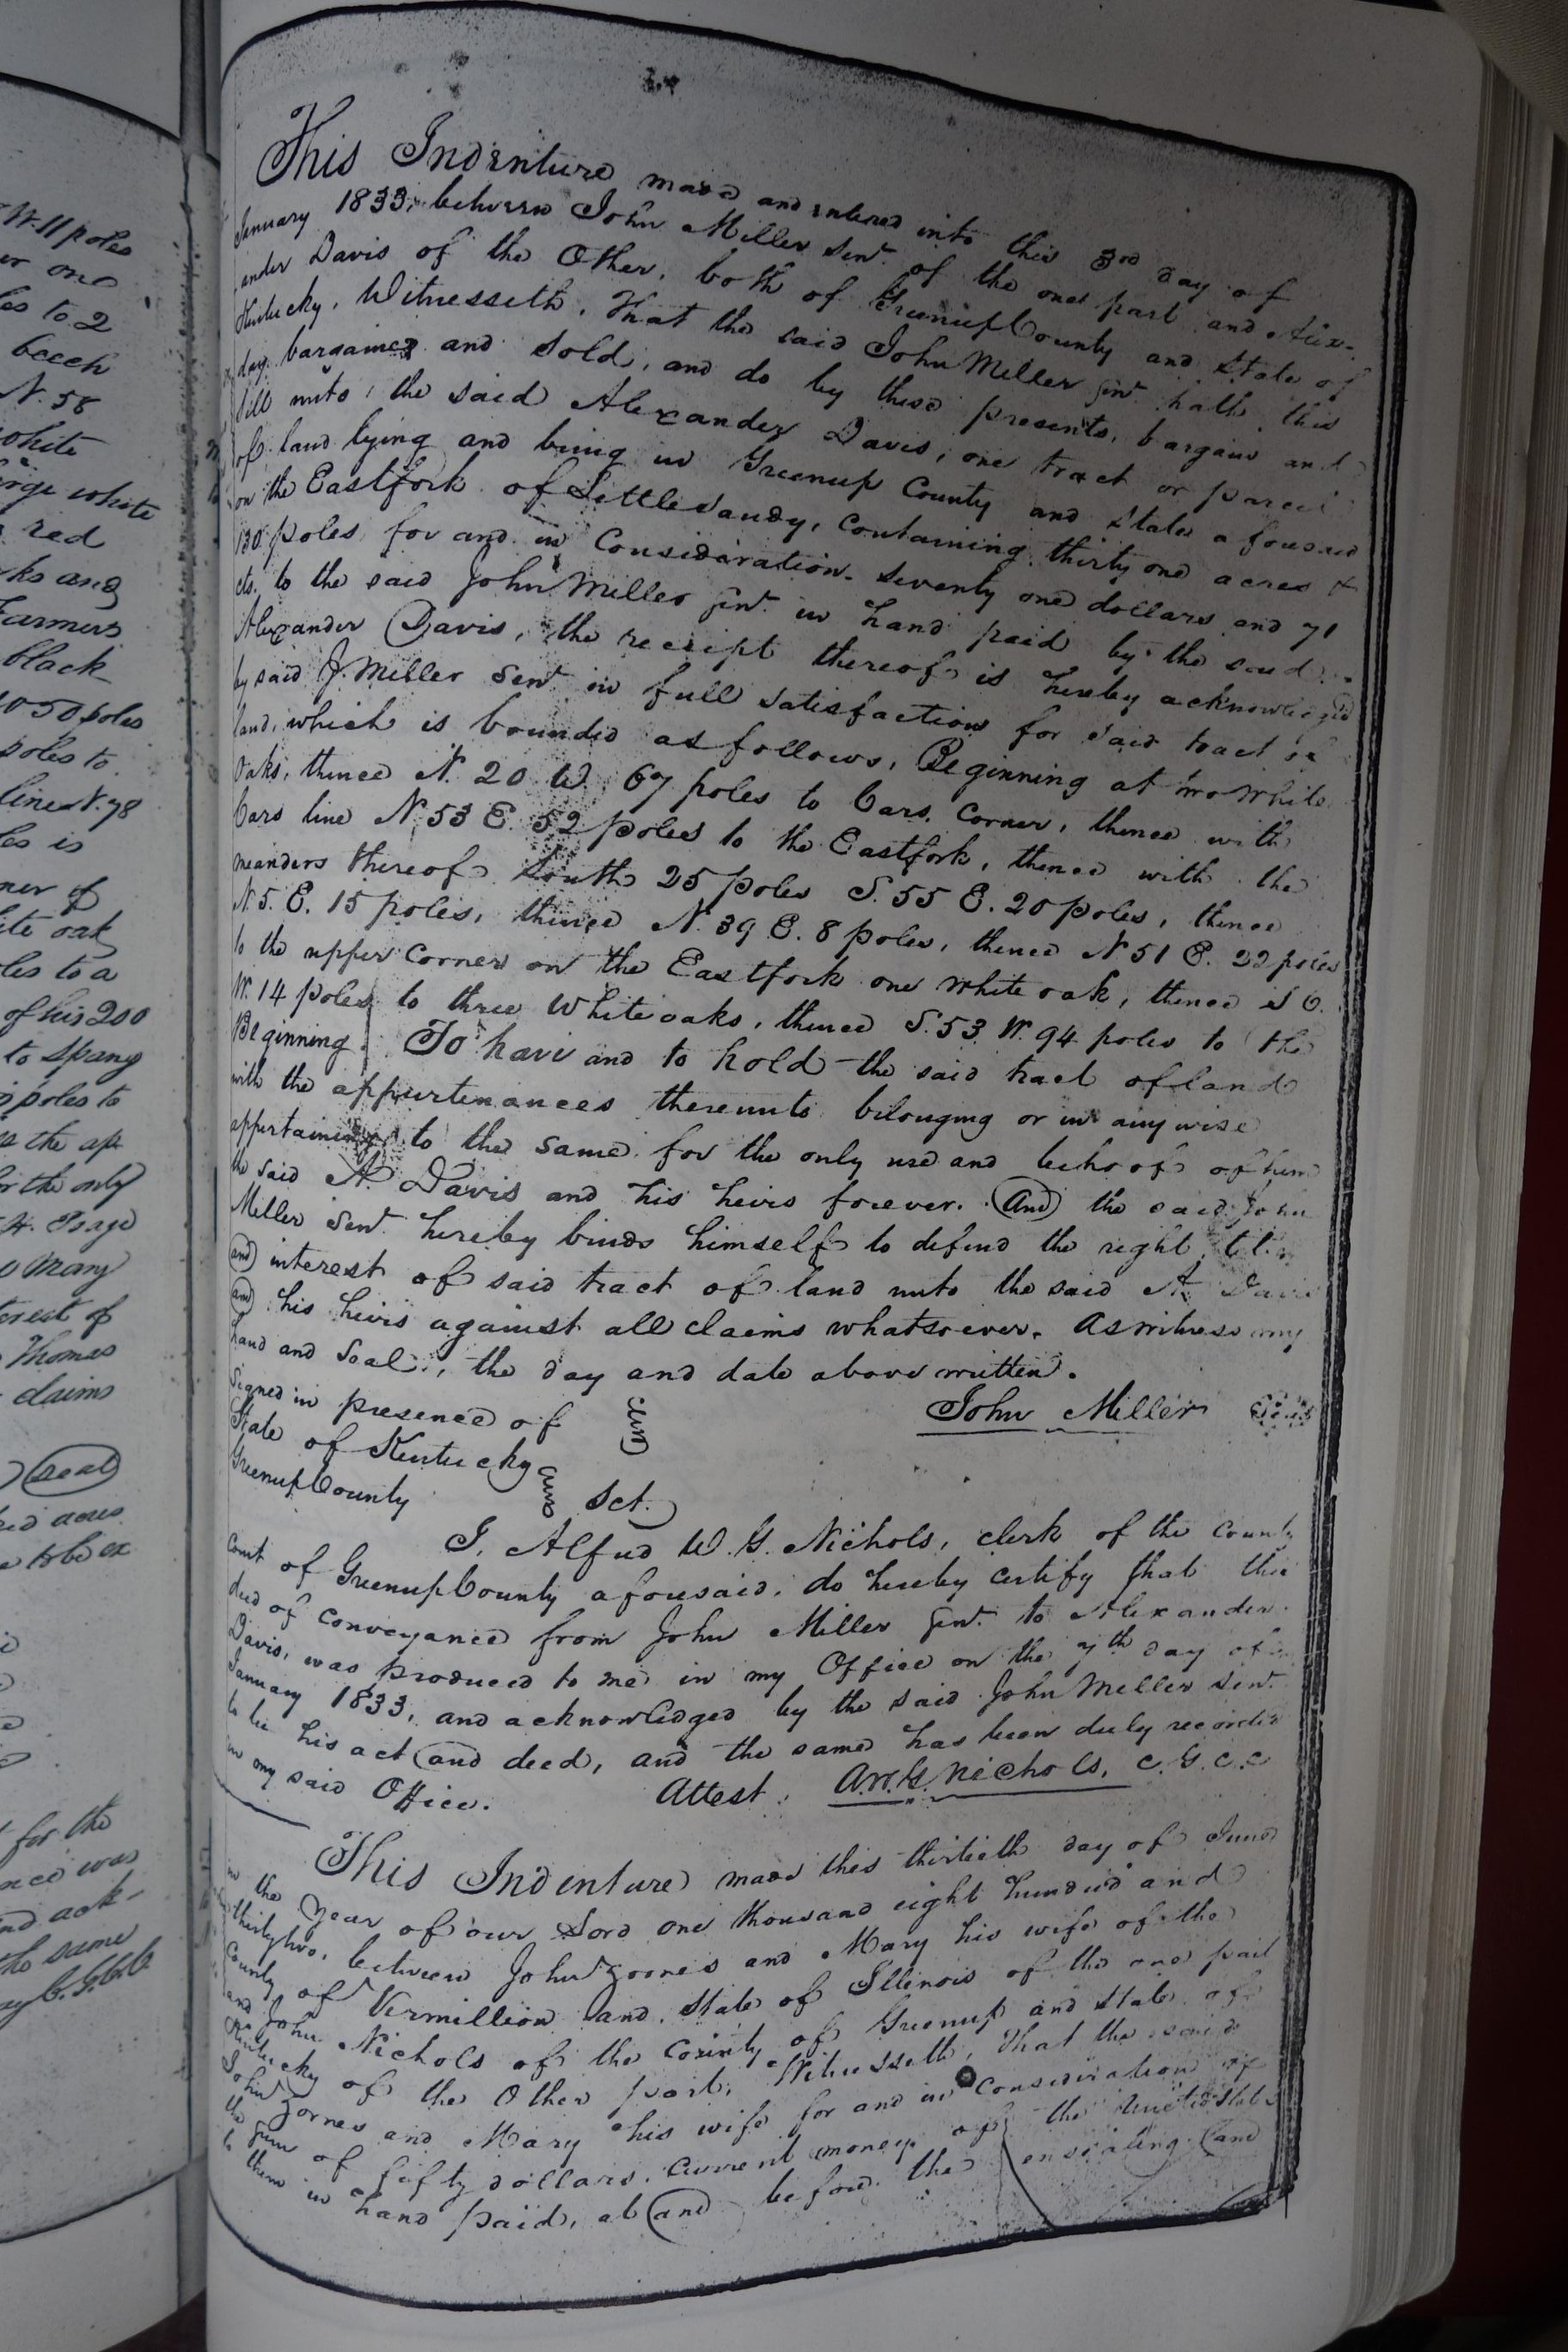 W. 11 poles
or one
les to 2
beech
N. 58
white
large white
red
ks and
Farmers
black
to 50 poles
poles to
line N. 78
les is
ner of
ite oak
les to a
of his 200
to Spang
poles to
the ap
or the only
Mary
terest of
Thomas
claims
seal
acres
to be ex
for the
was
nd ack-
the same
This Indenture made and entered into this 3rd day of
January 1833, between John Miller Senr. of the one part and Alex-
ander Davis of the Other, both of Greenup County and State of
Kentucky, Witnesseth, That the said John Miller Senr. hath this
day bargained and sold, and do by these presents, bargain and
sell unto, the said Alexander Davis, one tract or parcel
of land lying and being in Greenup County and State aforesaid
on the Eastfork of Little Sandy, containing thirty one acres &
130 poles, for and in Consideration seventy one dollars and 71
cts. to the said John Miller Senr. in hand paid by the said
Alexander Davis, the receipt thereof is hereby acknowledged
by said J. Miller Senr. in full satisfaction for said tract of
land, which is bounded as follows, Beginning at two White
Oaks, thence N. 20 W. 67 poles to Cars, Corner, thence with
Cars line N. 53 E. 52 poles to the Eastfork, thence with the
meanders thereof South 25 poles S. 55 E. 20 poles, thence
N. 5. E. 15 poles, thence N. 39 E. 8 poles, thence N 51 E. 22 poles
to the upper corner on the Eastfork one white oak, thence S 6.
W. 14 poles to three White oaks, thence S. 53 W. 94 poles to the
Beginning. To have and to hold the said tract of land
with the appurtenances thereunto belonging or in any wise
appertaining to the same for the only use and behoof of him
the said A. Davis and his heirs forever. And the said John
Miller Senr. hereby binds himself to defend the right, title
and interest of said tract of land unto the said A Davis
and his heirs against all claims whatsoever. As witness my
hand and Seal, the day and date above written.
Signed in presence of John Miller Seal
State of Kentucky
Greenup County Sct.
I, Alfred W. G. Nichols, clerk of the County
Court of Greenup County aforesaid, do hereby certify that this
deed of conveyance from John Miller Senr. to Alexander
Davis, was produced to me in my Office on the 7th day of
January 1833, and acknowledged by the said John Miller Senr.
to be his act and deed, and the same has been duly recorded
in my said Office. Attest, A.W.G. Nichols, C.G.C.C
This Indenture made this thirtieth day of June
in the year of our Lord one thousand eight hundred and
thirty two, between John Zornes and Mary his wife of the
County of Vermillion and State of Illinois of the one part
and John Nichols of the County of Greenup and State of
Kentucky of the Other part, Witnesseth, That the said
John Zornes and Mary his wife for and in consideration of
the sum of fifty dollars, current money of the United States
to them in hand paid, at and before the ensealing and